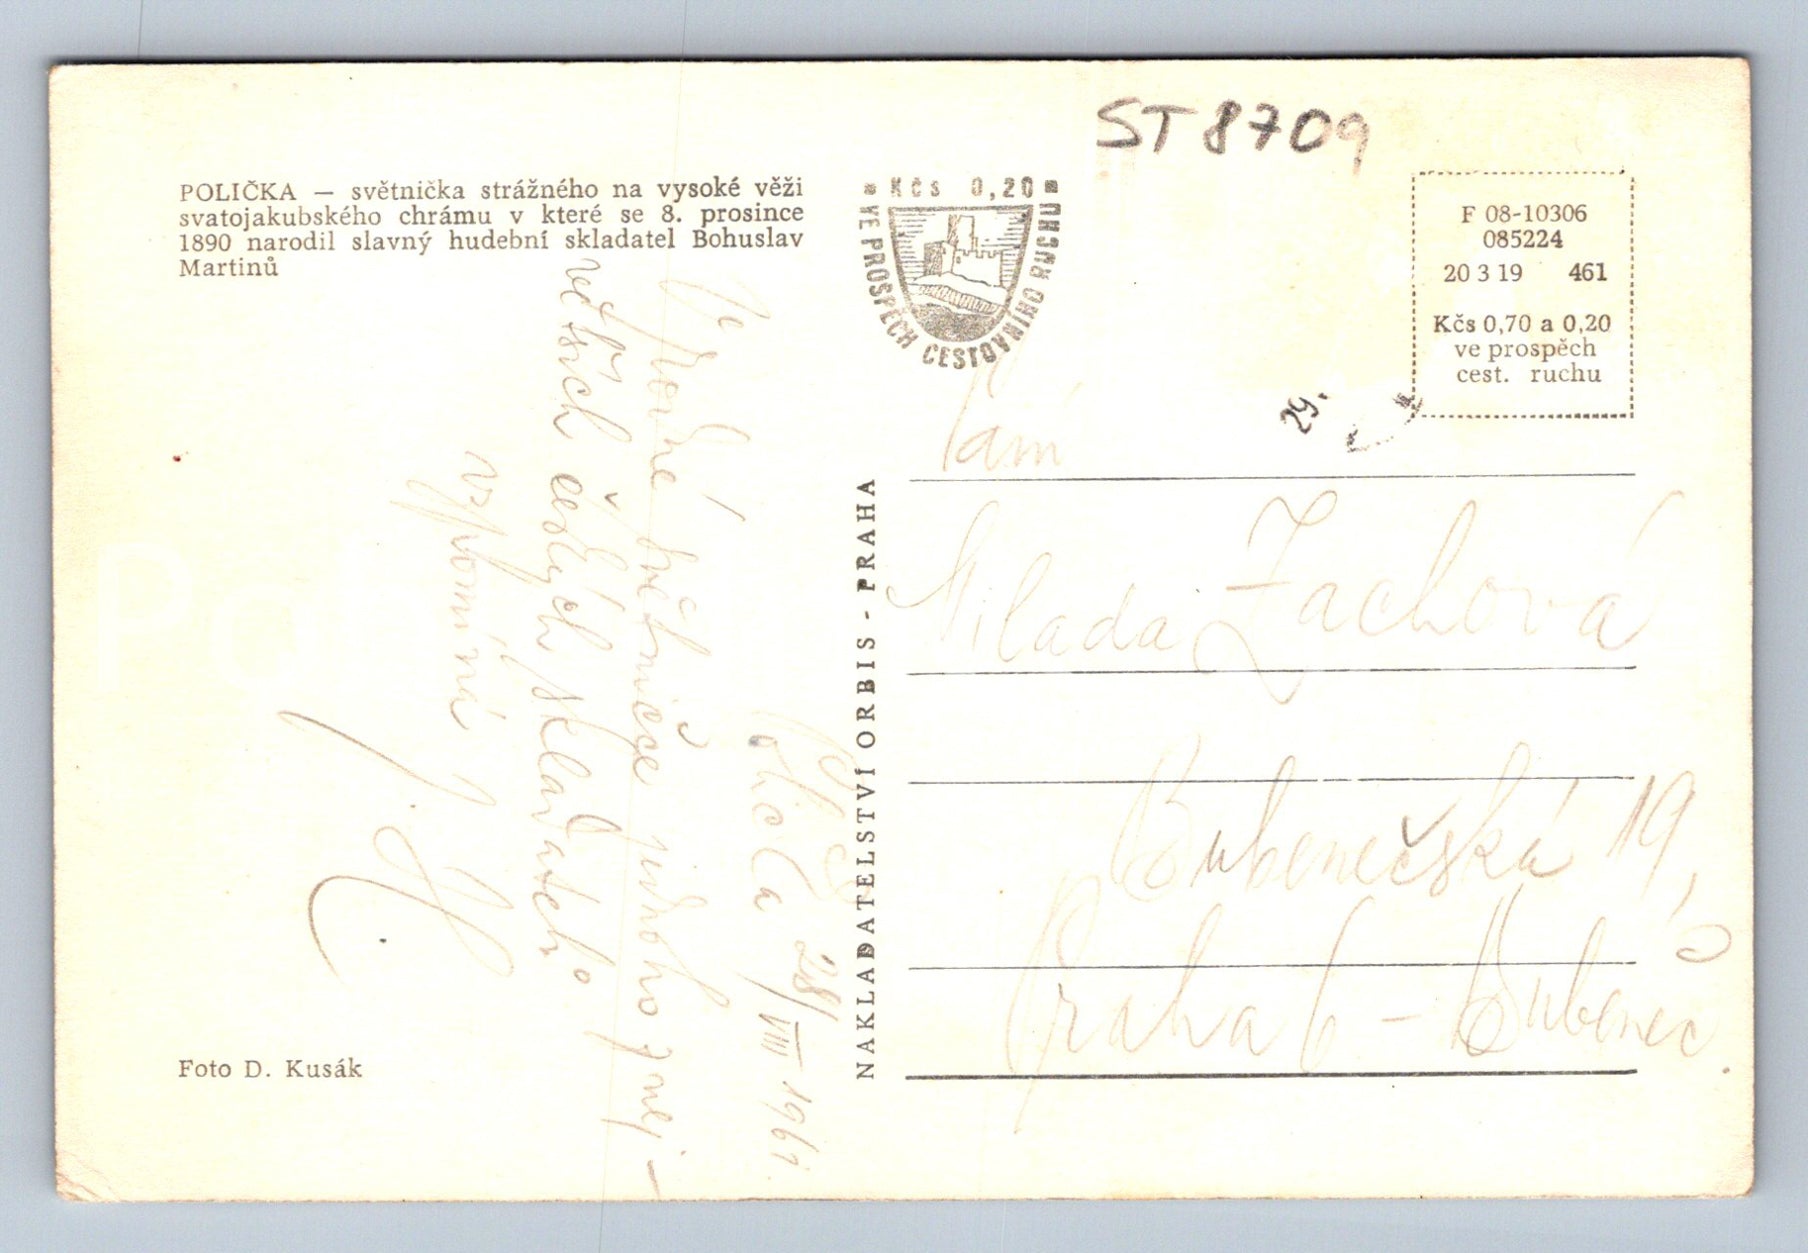 ST 8709
POLIČKA — světnička strážného na vysoké věži
svatojakubského chrámu v které se 8. prosince
1890 narodil slavný hudební skladatel Bohuslav
Martinů
Kčs 0,20
VE PROSPĚCH CESTOVNÍHO RUCHU
F 08-10306
085224
20 3 19 461
Kčs 0,70 a 0,20
ve prospěch
cest. ruchu
29.
Polička 28/VIII 1961
V rodné světničce jednoho z nej-
větších českých skladatelů
vzpomíná
NAKLADATELSTVÍ ORBIS - PRAHA
Milada Zachová
Bubenečská 19,
Praha 6 - Bubeneč
Foto D. Kusák